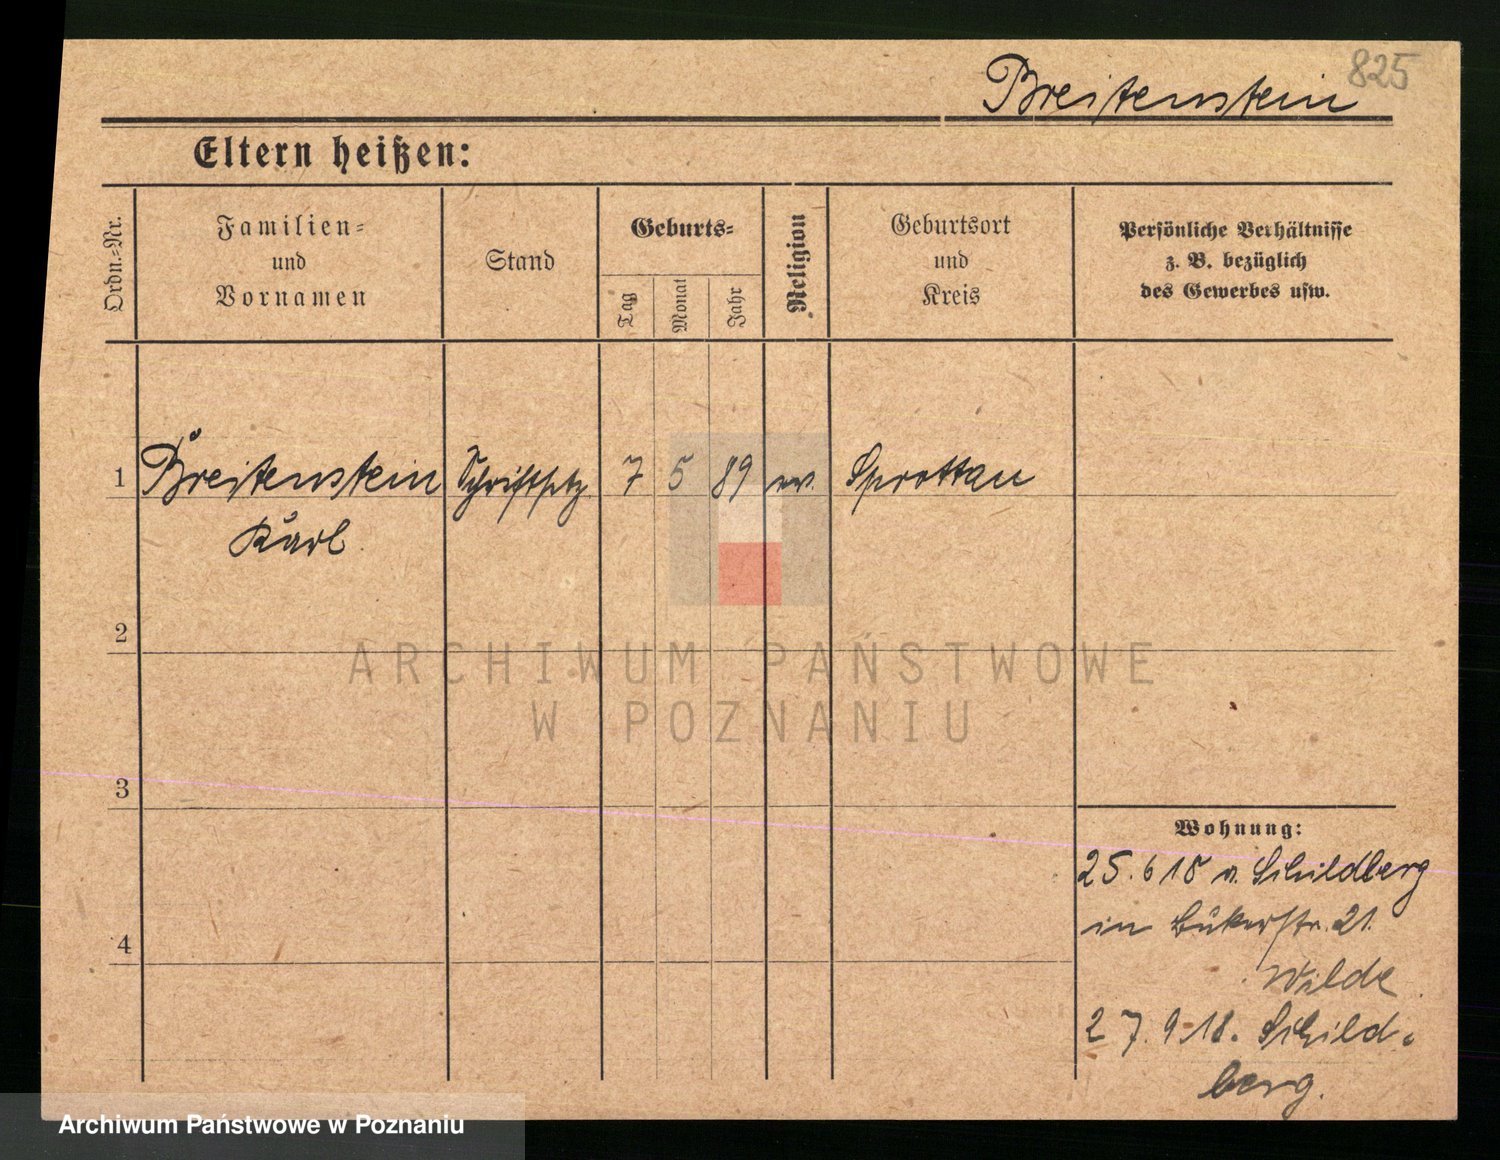 825
Breitenstein
Eltern heißen:
Ordn.-Nr.
Familien-
und
Vornamen
Stand
Geburts-
Tag
Monat
Jahr
Religion
Geburtsort
und
Kreis
Persönliche Verhältnisse
z. B. bezüglich
des Gewerbes usw.
1 Breitenstein Schriftsetz 7 5 89 ev. Sprottau
Karl
2
3
4
Wohnung:
25.6 18 v. Schildberg
in 21.
Wilde
27.9.18. Schild-
berg.
ARCHIWUM PAŃSTWOWE
W POZNANIU
Archiwum Państwowe w Poznaniu